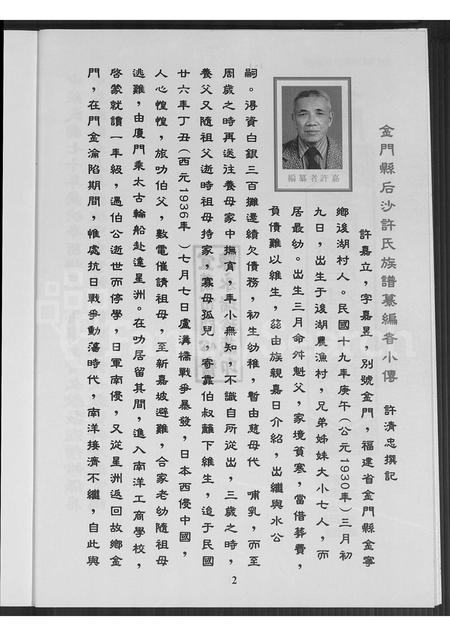 金門縣后沙許氏族譜纂編者小傳　許清忠撰記
許嘉立，字嘉昱，別號金門，福建省金門縣金寧
鄉後湖村人。民國十九年庚午（公元1930年）三月初
九日，出生于後湖農漁村，兄弟姊妹大小七人，而
居最幼。出生三月命舛剋父，家境貧寒，當借葬費，
負債難以維生，茲由族親嘉日介紹，出繼與水公
嗣。得資白銀三百攤還績欠債務，初生幼稚，暫由慈母代　哺乳，而至
周歲之時再送注養母家中撫育，年小無知，不識自所從出，三歲之時，
養父又隨祖父逝時祖母持家，寡母孤兒，寄靠伯叔蔭下維生，迨于民國
廿六年丁丑（西元1936年）七月七日盧溝橋戰爭暴發，日本西侵中國，
人心惶惶，旅叻伯父，數電催請祖母，至新嘉坡避難，合家老幼隨祖母
逃難，由廈門乘太古輪船赴達星洲。在叻居留其間，進入南洋工商學校，
啓蒙就讀一年級，遇伯公逝世而停學，日軍南侵，又從星洲返回故鄉金
門，在門金淪陷期間，惟處抗日戰爭動蕩時代，南洋接濟不繼，自此與
編纂者許嘉
2